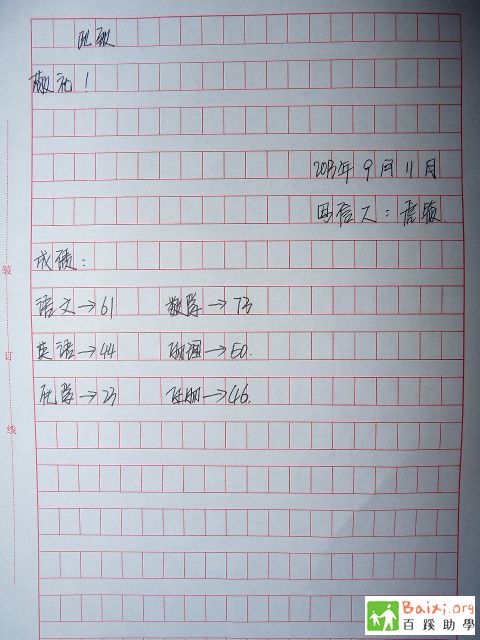 此致
敬礼!
2013年9月11月
写信人:
成绩:
语文→61 数学→73
英语→44 物理→50.
化学→23 生物→46.
装
订
线
Baixi.org
百蹊助學